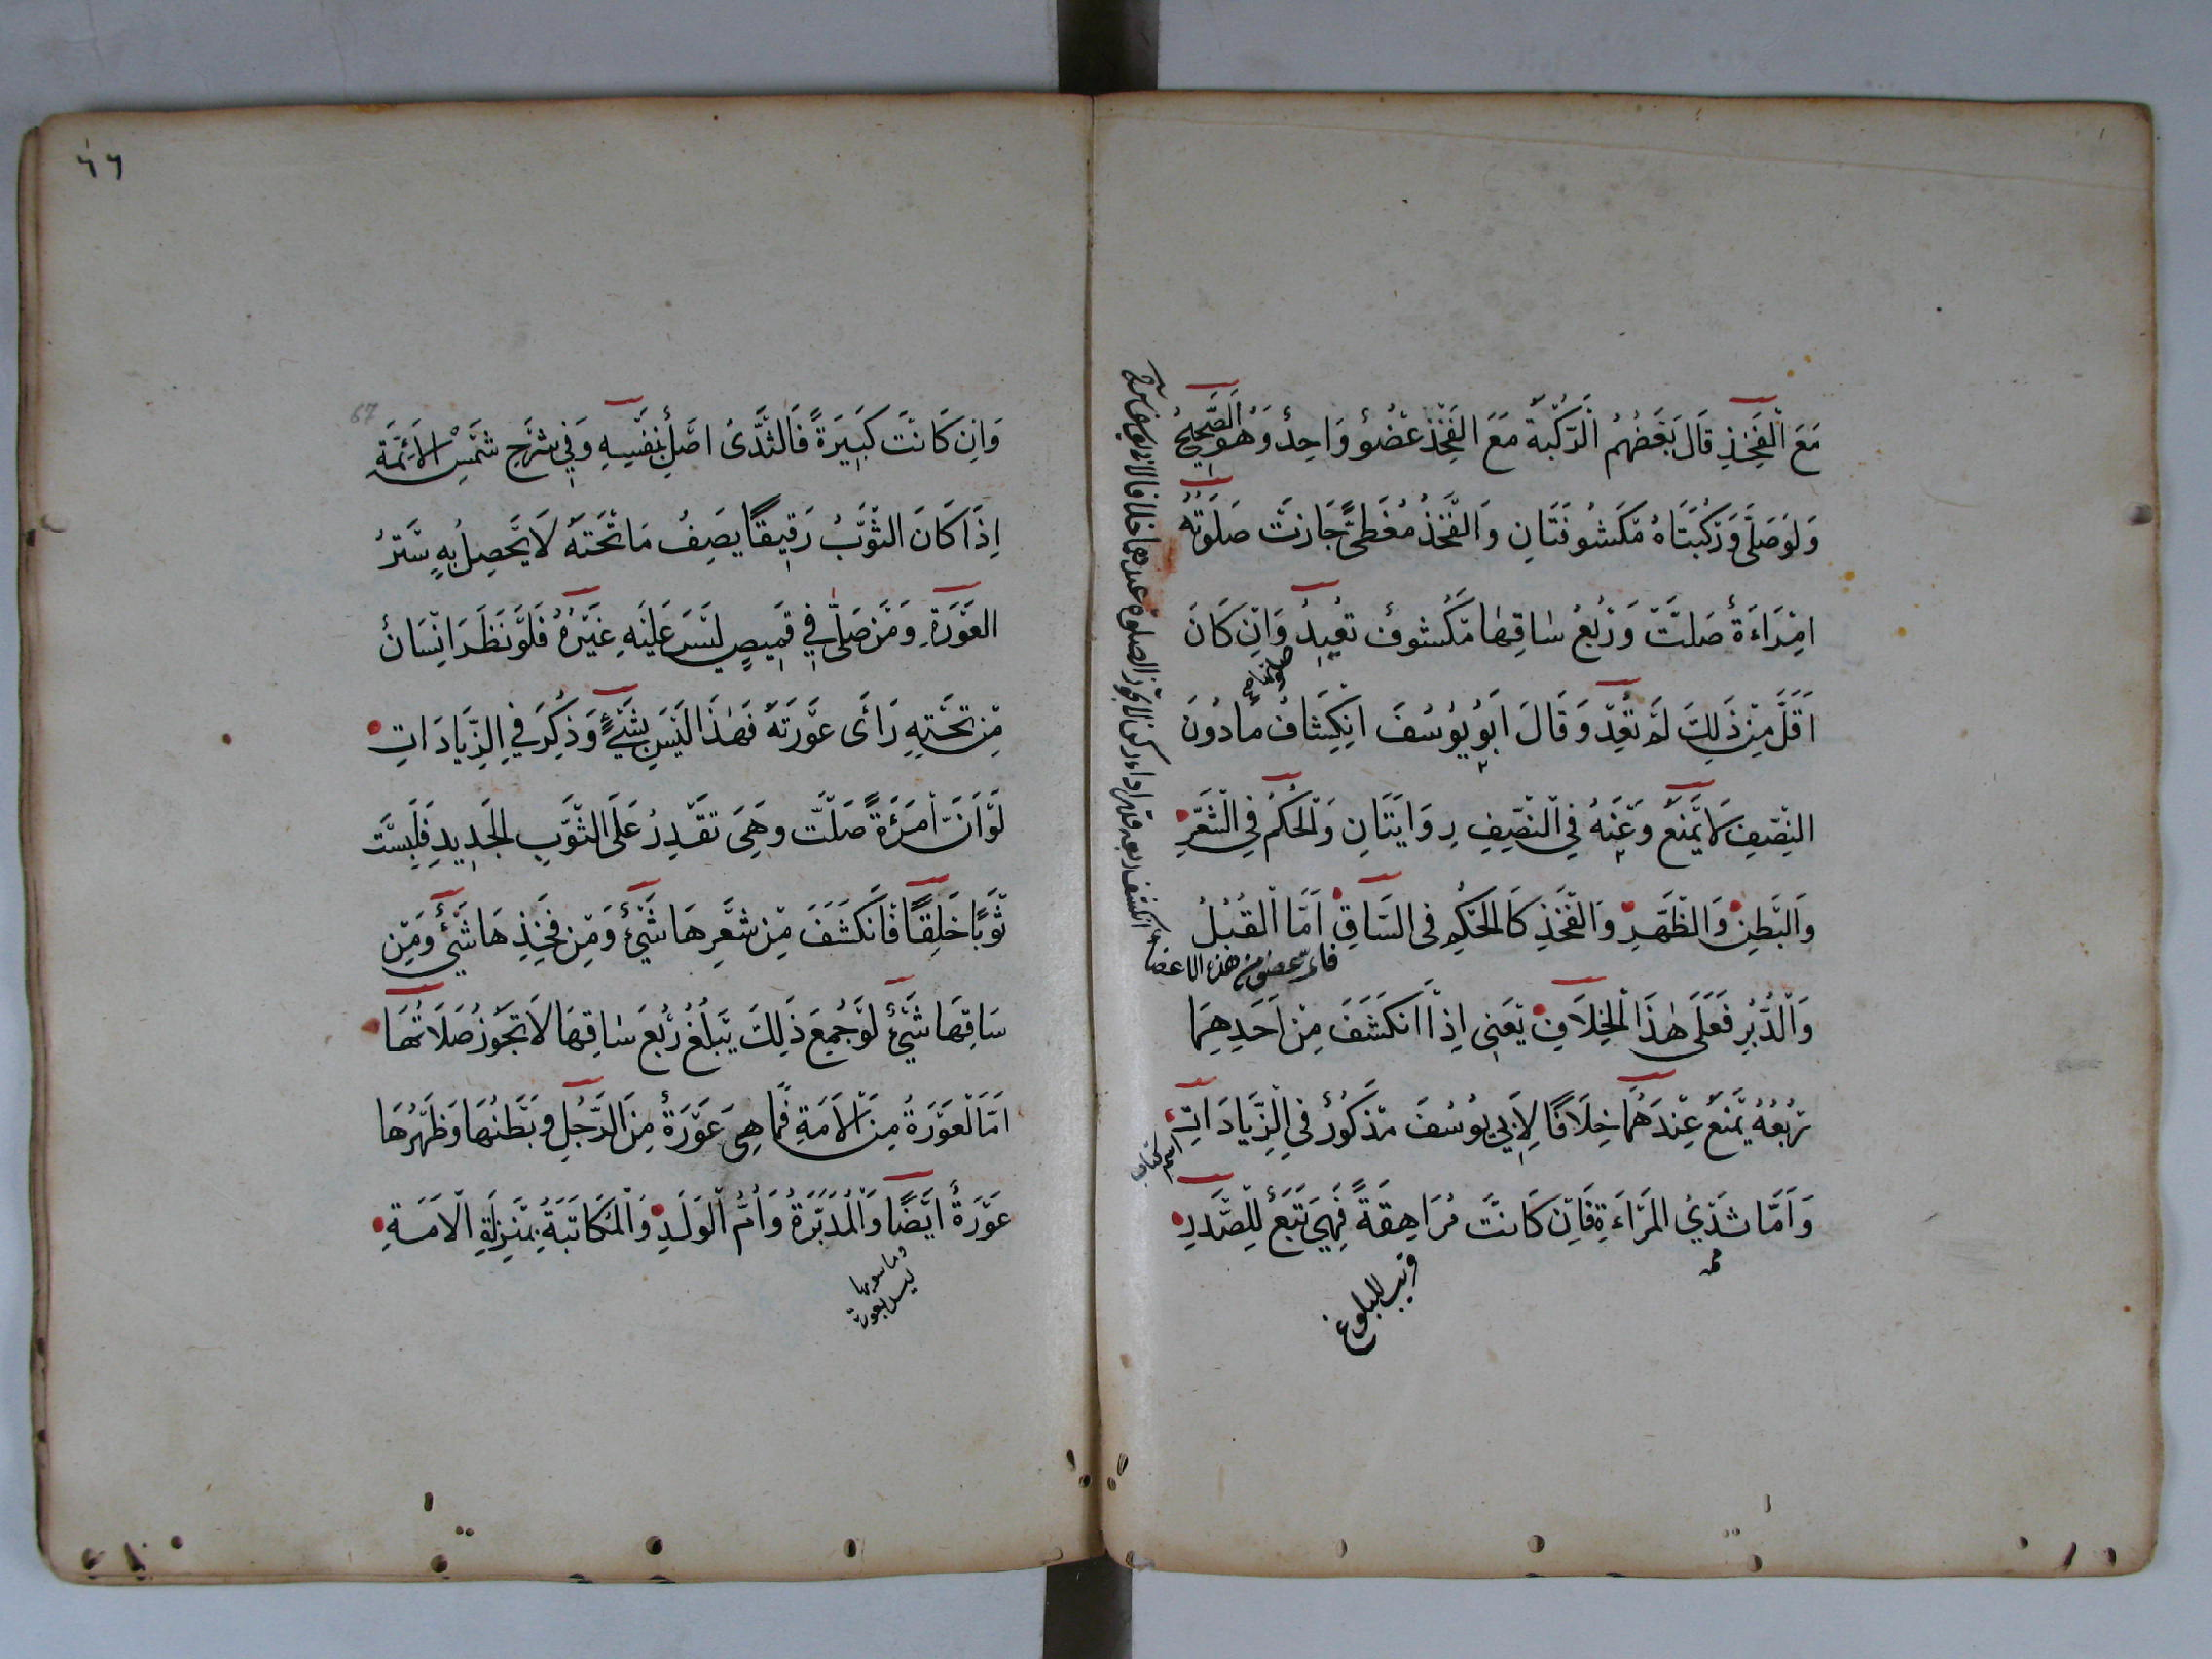 مَعَ الْفَخِذِ قَالَ بَعْضُهُمْ الرُّكْبَةُ مَعَ الفَخِذِ عُضْوٌ وَاحِدٌ وَهُوَ الصَّحِيحُ
وَلَوْ صَلَّى وَرُكْبَتَاهُ مَكْشُوفَتَانِ وَالْفَخِذُ مُغَطًّى جَازَتْ صَلَوتُهُ
امْرَاءَةٌ صَلَّتْ وَرُبْعُ سٰاقِهَا مَكْشُوفٌ تُعِيدُ وَاِنْ كَانَ
اَقَلَّ مِنْ ذَلِكَ لَمْ تُعِدْ وَقَالَ اَبُو يُوسُفَ اِنْكِشَافُ مَادُونَ
النِّصْفِ لَا يَمْنَعُ وَعَنْهُ فِي النِّصْفِ رِوَايَتَانِ وَالْحُكْمُ فِي الشَّعْرِ
وَالْبَطْنِ وَالظَّهْرِ وَالْفَخِذِ كَالْحُكْمِ فِى السَّاقِ اَمَّا الْقُبُلُ
فاى عضو من هذه الاعضاء
وَالدُّبُرِ فَعَلَى هٰذَا الْخِلَافِ يَعْنِى اِذَا انْكَشَفَ مِنْ اَحَدِهِمَا
رُبُعُهُ يَمْنَعُ عِنْدَهُمَا خِلَافًا لِاَبِي يُوسُفَ مَذْكُورٌ فِي الزِّيَادَاتِ
اسم كتاب
وَاَمَّا ثَدْيُ الْمَرْاَءَةِ فَاِنْ كَانَتْ مُرَاهِقَةً فَهِيَ تَبَعٌ لِلصَّدْرِ
قريب للبلوغ
٦٦
67
وَاِنْ كَانَتْ كَبِيرَةً فَالثَّدْىُ اَصْلٌ بِنَفْسِهِ وَفِي شَرْحِ شَمْسِ الْاَئِمَّةِ
اِذَا كَانَ الثَّوْبُ رَقِيقًا يَصِفُ مَا تَحْتَهُ لَا يَحْصِلُ بِهِ سَتْرُ
الْعَوْرَةِ وَمَنْ صَلَّى فِي قَمِيصٍ لَيْسَ عَلَيْهِ غَيْرُهُ فَلَوْ نَظَرَ اِنْسَانٌ
مِنْ تَحْتِهِ رَاَى عَوْرَتَهُ فَهٰذَا لَيْسَ بِشَيْءٍ وَذُكِرَ فِي الزِّيَادَاتِ
لَوْ اَنَّ امْرَءَةً صَلَّتْ وَهِيَ تَقْدِرُ عَلَى الثَّوْبِ الْجَدِيدِ فَلَبِسَتْ
ثَوْبًا خَلِقًا فَانْكَشَفَ مِنْ شَعْرِهَا شَيْئٌ وَمِنْ فَخِذِهَا شَيْئٌ وَمِنْ
سَاقِهَا شَيْئٌ لَوْ جُمِعَ ذَلِكَ يَبْلُغُ رُبُعَ سٰاقِهَا لَا تَجُوزُ صَلَاتُهَا
اَمَّا الْعَوْرَةُ مِنَ الْاَمَةِ فَمَا هِيَ عَوْرَةٌ مِنَ الرَّجُلِ وَبَطْنُهَا وَظَهْرُهَا
عَوْرَةٌ اَيْضًا وَالْمُدَبَّرَةُ وَاُمُّ الْوَلَدِ وَالْمُكَاتَبَةُ بِمَنْزِلَةِ الْاَمَةِ
وما سويها
ليس بعورة